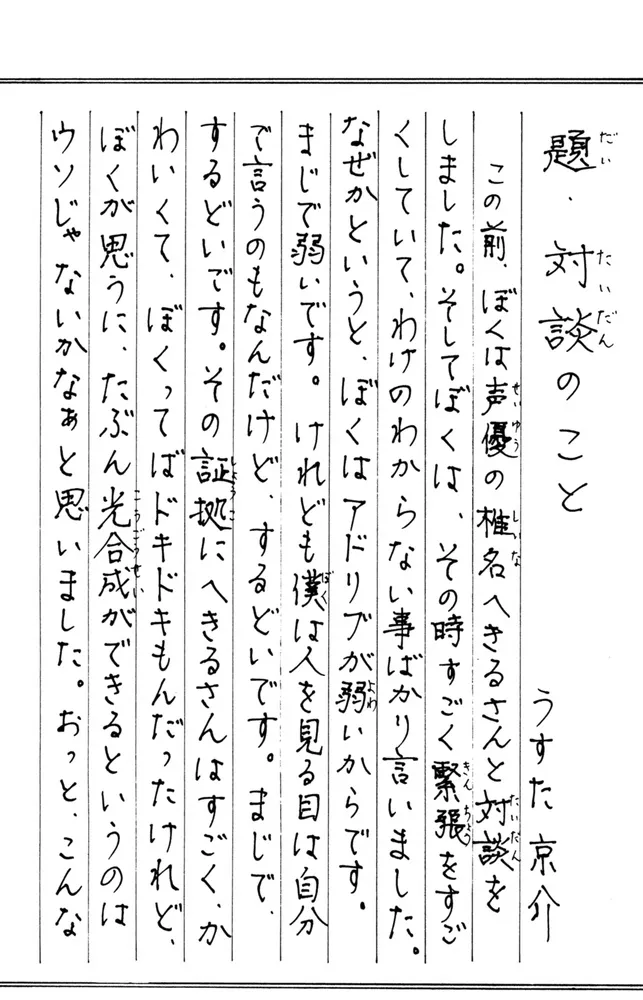 題・対談のこと
うすた京介
この前、ぼくは声優の椎名へきるさんと対談を
しました。そしてぼくは、その時すごく緊張をすご
くしていて、わけのわからない事ばかり言いました。
なぜかというと、ぼくはアドリブが弱いからです。
まじで弱いです。けれども僕は人を見る目は自分
で言うのもなんだけど、するどいです。まじで、
するどいです。その証拠にへきるさんはすごく、か
わいくて、ぼくってばドキドキもんだったけれど、
ぼくが思うに、たぶん光合成ができるというのは
ウソじゃないかなぁと思いました。おっと、こんな